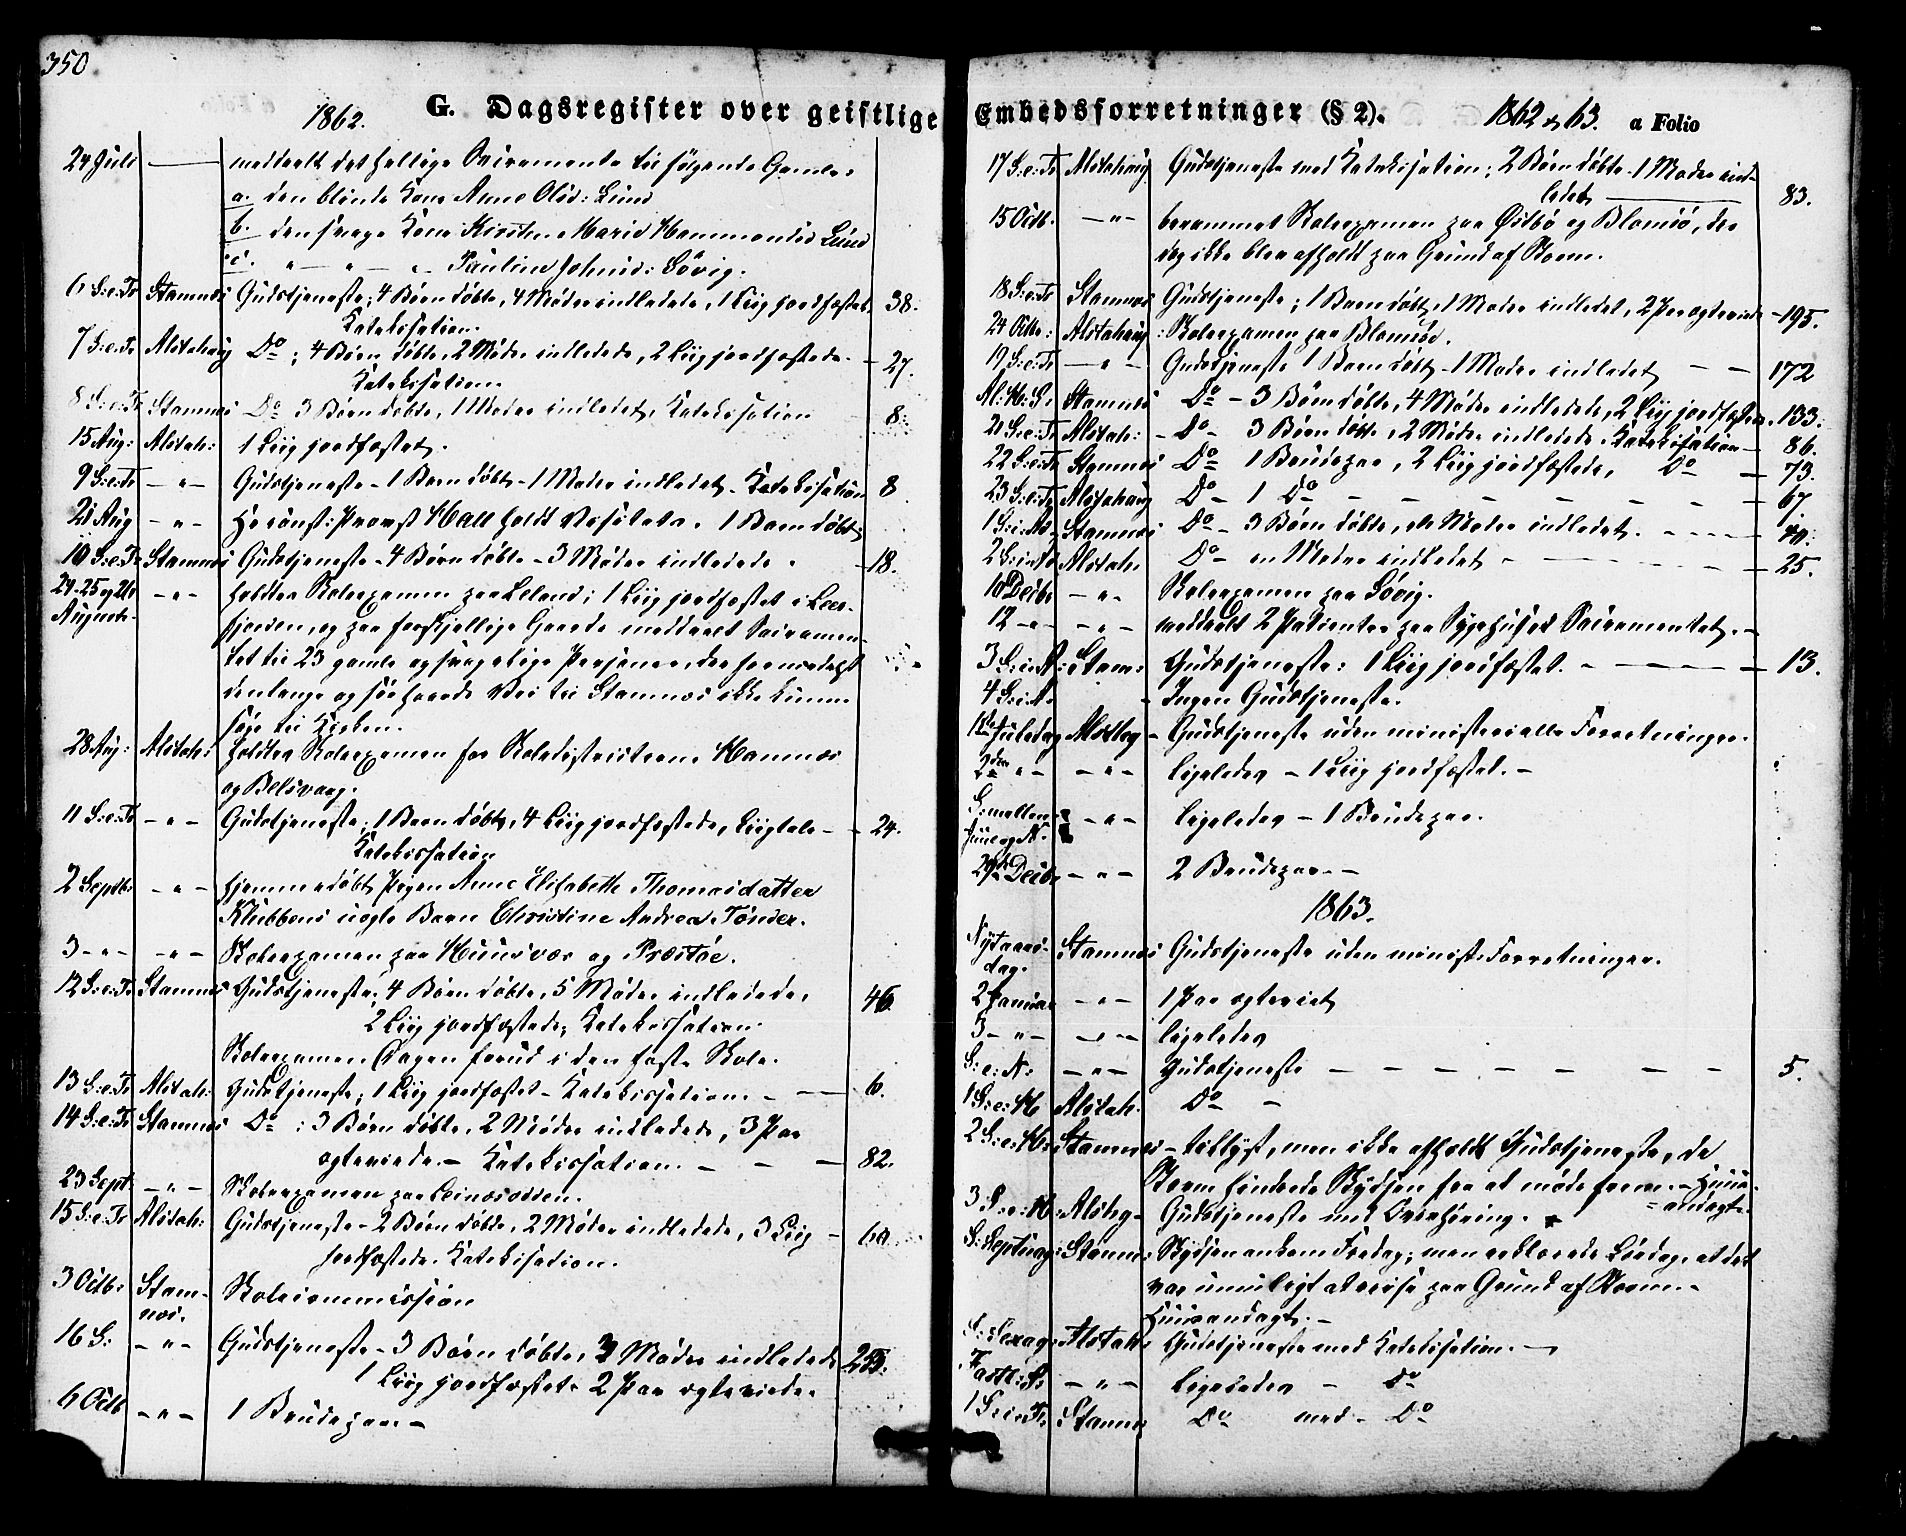 350
1862. G. Dagsregister over geistlige
24 Juli meddeelt det hellige Sacramente til følgende Gamle:
a. den blinde Kone Anne Olsd: Lund
b. den svage Kone Kirsten Marie Hemmensd Lund
c. " — " — " Pauline Johnsd: Søvig.
6 S: e: Tr Stamnes Gudstjeneste; 4 Børn døbte, 4 Mødre indledede, 1 Liig jordfæstet. 38.
Katekisation.
7 S: e: Tr Alstahaug Do; 4 Børn døbte, 2 Mødre indledede, 2 Liig jordfæstede. — 27.
Katekisation.
8 S: e: Tr Stamnes Do 3 Børn døbte, 1 Moder indledet, Katekisation 8.
15 Aug: Alstah: 1 Liig jordfæstet.
9 S: e: Tr — " — Gudstjeneste — 1 Barn døbt — 1 Moder indledet — Katekisation 8
21 Aug — " — Hr const: Provst Hall holdt Visitats. 1 Barn døbt:
10 S: e: Tr Stamnes Gudstjeneste — 4 Børn døbte — 3 Mødre indledede. — 18.
24-25 og 26 — " — holdtes Skoleexamen paa Leland; 1 Liig jordfæstet i Leer-
August. fjorden, og paa forskjellige Gaarde meddeelt Sacramen-
tet til 23 gamle og svagelige Personer, der formedelst
den lange og søehaarde Vei til Stamnes ikke kunne
søge til Kirken.
28 Aug: Alstah: holdtes Skoleexamen for Skoledistricterne Hamnes
og Belsvaag.
11 S: e: Tr — " — Gudstjeneste; 1 Barn døbt, 4 Liig jordfæstede, Liigtale — 24.
Katekisation
2 Septbr — " — hjemmedøbt Pigen Anne Elisabette Thomasdatter
Klubbens uægte Barn Christine Andrea Tønder.
3 — " — — " — Skoleexamen paa Huusvær og Præstøe.
12 S: e: Tr Stamnes Gudstjeneste; 4 Børn døbte, 5 Mødre indledede, 46.
2 Liig jordfæstede; Katekisation.
Skoleexamen Dagen forud i den faste Skole.
13 S: e: Tr Alstah: Gudstjeneste; 1 Liig jordfæstet — Katekisation. — — 6.
14 S: e: Tr Stamnes Do: 3 Børn døbte, 2 Mødre indledede, 3 Par
ægteviede. — Katekisation. — — — 82.
23 Sept: — " — Skoleexamen paa Leinesodden.
15 S: e: Tr Alstah: Gudstjeneste — 2 Børn døbte, 2 Mødre indledede, 3 Liig — 60
jordfæstede. Katekisation.
3 Octb: Stam- Skolecommission
nes.
16 S: — " — Gudstjeneste — 3 Børn døbte, 3 Mødre indledede
1 Liig jordfæstet. 2 Par ægteviede.
6 Octb — " — 1 Brudepar. —
Embedsforretninger (§ 2). 1862 & 63. a Folio
17 S: e: Tr Alstahaug Gudstjeneste med Katekisation; 2 Børn døbte. 1 Moder ind-
ledet 83.
15 Octb. — " — berammet Skoleexamen paa Østbø og Blomsø, der
dog ikke blev afholdt paa Grund af Storm.
18 S: e: Tr Stamnes Gudstjeneste; 1 Barn døbt, 1 Moder indledet, 2 Par ægteviede — 195.
24 Octb: Alstahaug: Skoleexamen paa Blomsø.
19 S: e: Tr — " — Gudstjeneste 1 Barn døbt — 1 Moder indledet — — 172
Al: H: S: Stamnes Do — 3 Børn døbte, 4 Mødre indledede, 2 Liig jordfæstede. 133.
21 S: e: Tr Alstah: — Do — 3 Børn døbte, 2 Mødre indledede. Katekisation — 86.
22 S: e: Tr Stamnes Do 1 Brudepar, 2 Liig jordfæstede, Do — 73.
23 S: e: Tr Alstahaug Do — 1 Do — — — — — — 67
1 S: i: Ad: Stamnes Do — 3 Børn døbte, en Moder indledet. — — — 40.
2 S: i: Ad Alstah. Do — en Moder indledet — — — — 25.
10 Decbr — " — Skoleexamen paa Søvig.
12 — " — — " — meddeelt 2 Patienter paa Sygehuset Sacramentet. —
3 S: i: A: Stam: Gudstjeneste: 1 Liig jordfæstet. — — — — 13.
4 S: i: A. — Ingen Gudstjeneste.
1ste Juledag Alsthg — Gudstjeneste uden ministerialle Forretninger.
2den " — — " — ligeledes — 1 Liig jordfæstet. —
S: mellem — " — ligeledes — 1 Brudepar.
Juul og N.
29de Decbr — " — 2 Brudepar. —
1863.
Nytaars- Stamnes Gudstjeneste uden minist: Forretninger.
dag.
2 Januar — " — 1 Par ægteviet
3 — " — — " — ligeledes
S: e: N: — " — Gudstjeneste — — — — — — — 5.
1 S: e: H Alstah. Do —
2 S: e: H: Stamnes — tillyst, men ikke afholdt Gudstjeneste, da
Storm hindrede Skydsen fra at møde frem. — Huus-
andagt.
3 S: e: H: Alsthg — Gudstjeneste med Overhøring.
S: Septuag: Stamn: Skydsen ankom Fredag; men erklærede Løverdag, at det
var umuligt at reise paa Grund af Storm. —
Huusandagt. —
S: Sexag: Alstah: Gudstjeneste med Katekisation. —
Fastl: S: — " — ligeledes — Do
1 S: i: F: Stamn: Do med — Do